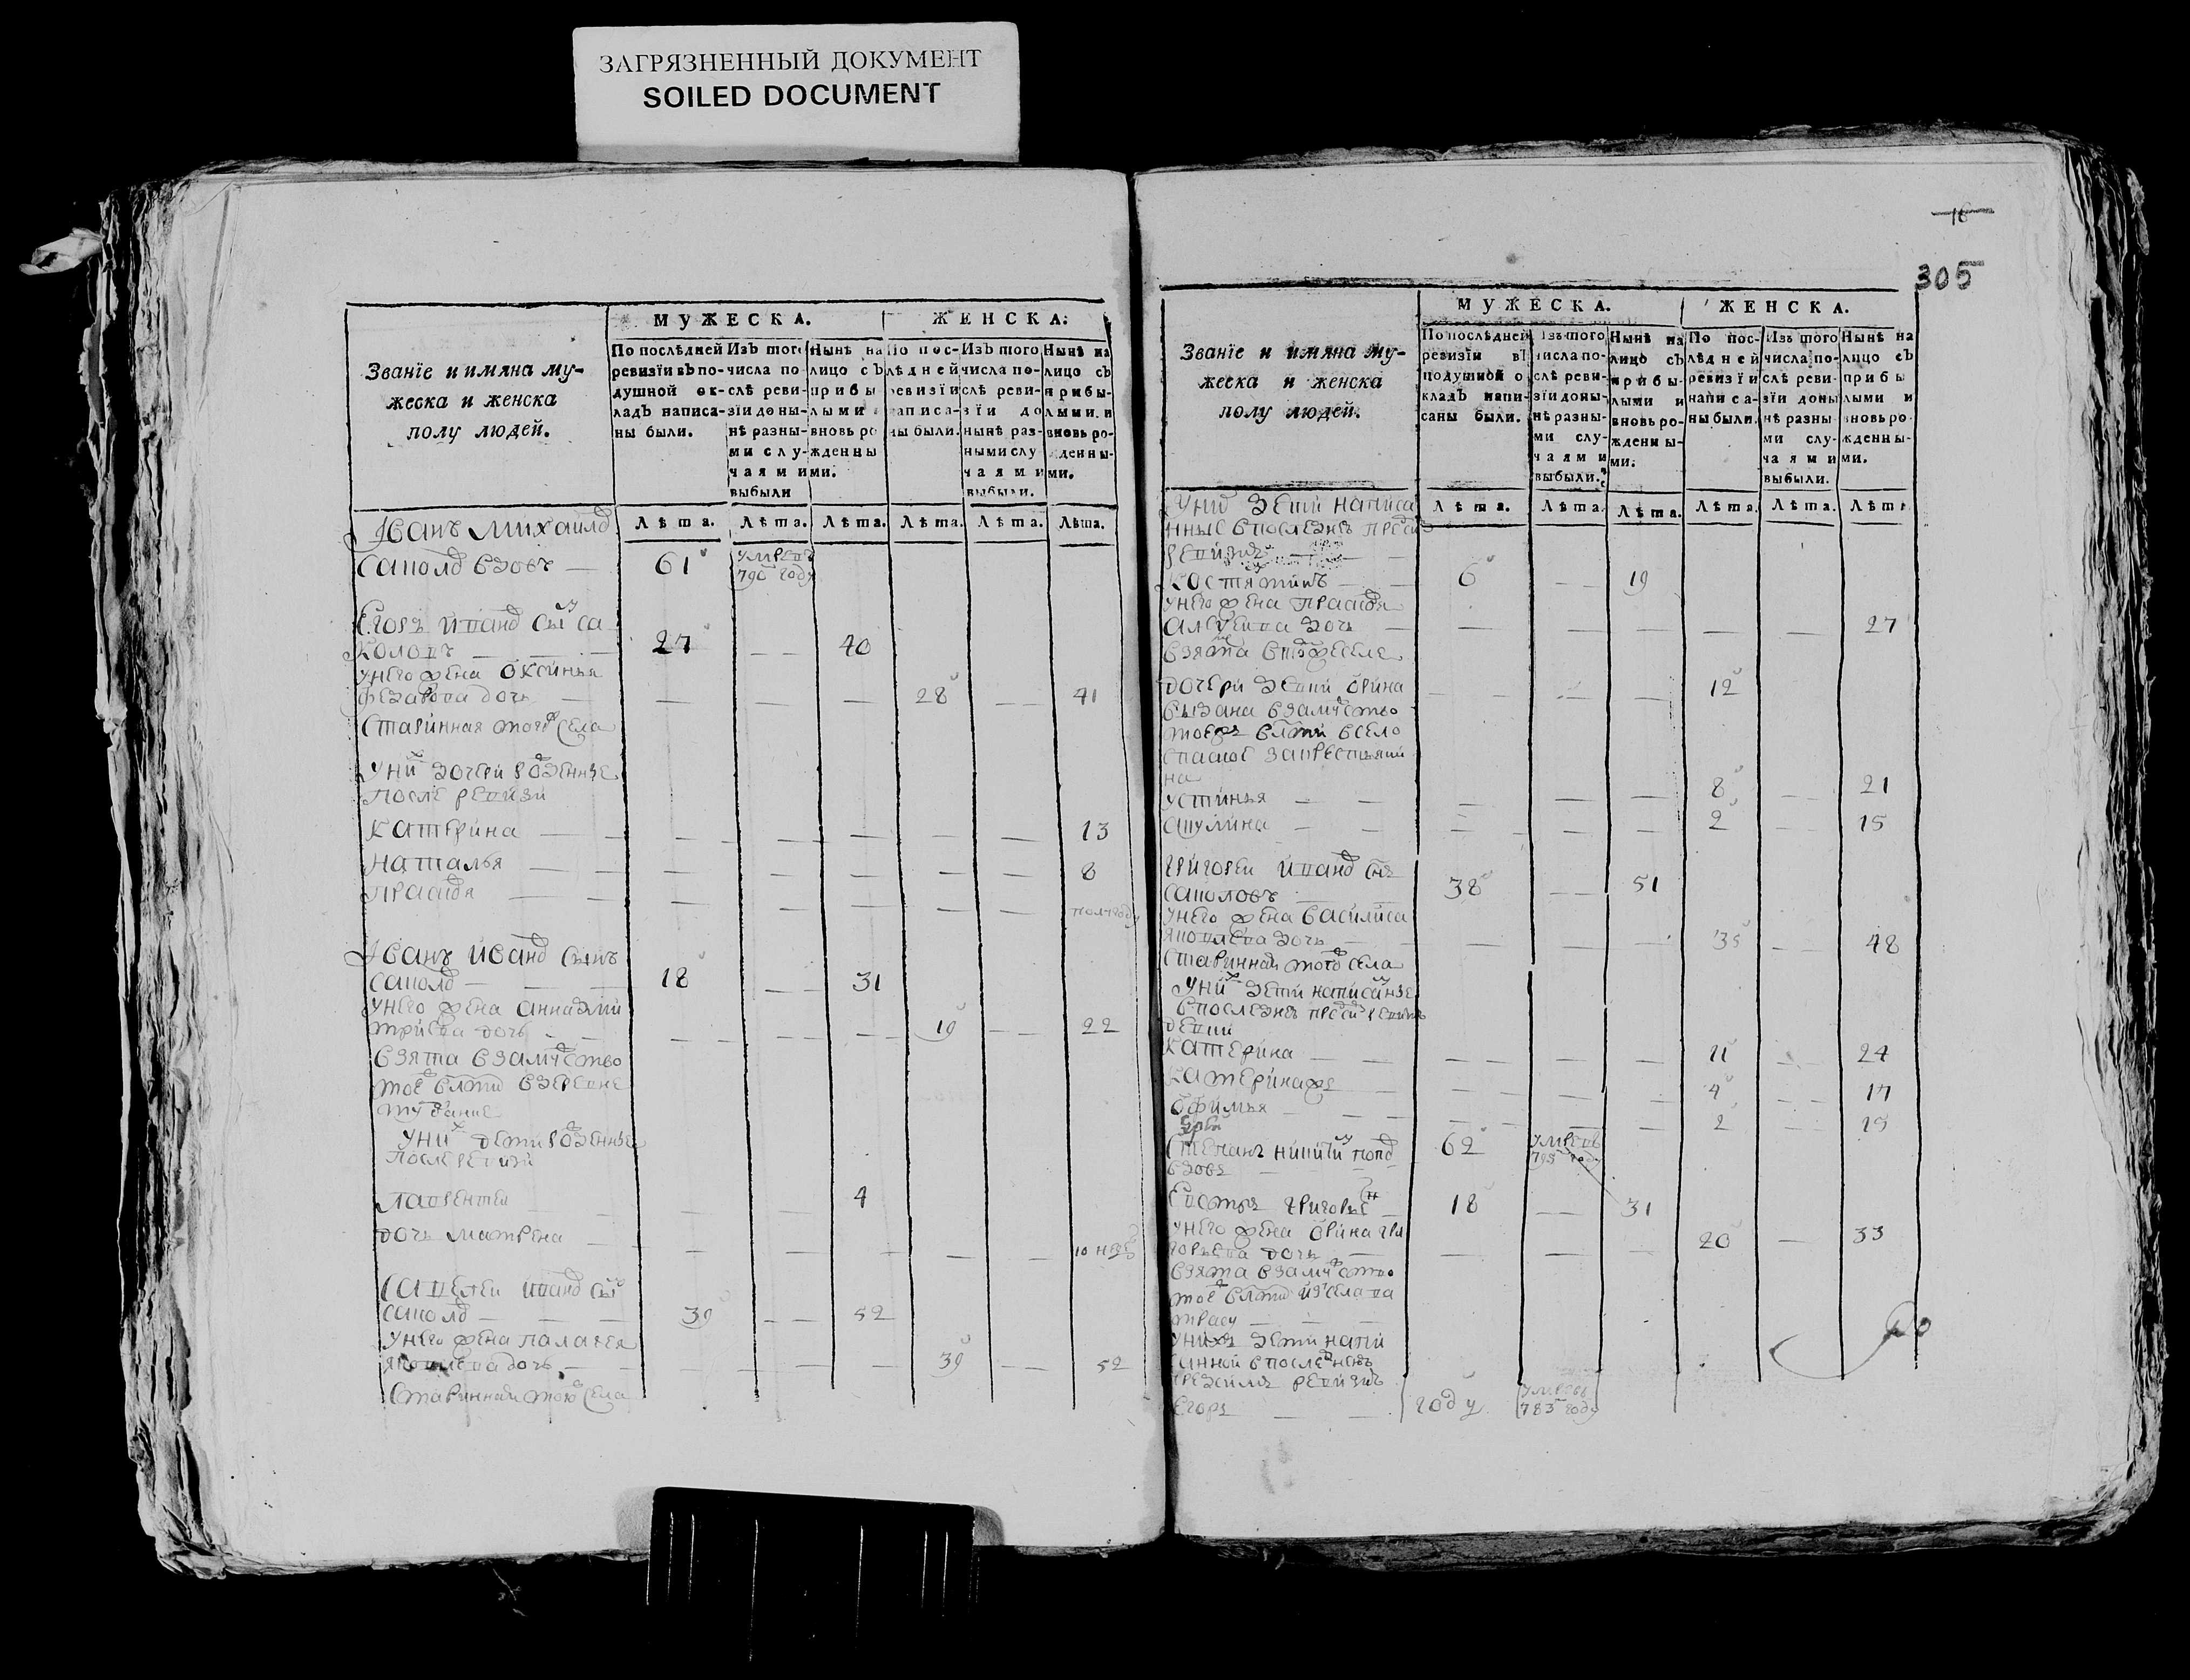 ЗАГРЯЗНЕННЫЙ ДОКУМЕНТ
SOILED DOCUMENT
Званїе и имяна му-
жеска и женска
полу людей.
МУЖЕСКА.
ЖЕНСКА.
По послѣдней
ревизїи въ по-
душной ок-
ладъ написа-
ны были.
Изъ того
числа по-
слѣ реви-
зїи до ны-
нѣ разны-
ми слу-
чаями
выбыли
Нынѣ на
лицо съ
прибы
лыми
вновь ро
жденны
ми.
По пос-
лѣдней
ревизїи
написа-
ны были.
Изъ того
числа по-
слѣ реви-
зїи до
нынѣ раз-
ными слу
чаями
выбыли.
Нынѣ на
лицо съ
прибы-
лыми и
вновь ро-
жденны-
ми.
Лѣта. Лѣта. Лѣта. Лѣта. Лѣта. Лѣта.
Іванъ михаилд
саколд вдовъ — 61 умре 790 году
Егоръ иванд сы са
коловъ — 27 — 40
унего жена оксинья
федарова дочь — 28 — 41
старинная тогд села
уни дочери рожденные
после ревизи
катерина — 13
наталья — 8
прасков — полугоду
Іванъ иванд сынъ
саколд — 18 — 31
унего жена анна дми
триева дочь — 19 — 22
взята взамуство
тое влти в деревне
уни дети рожденные
после ревизи
лаврентеи — 4
дочь матрена — 10 нед
савелеи иванд сы
саколд — 39 — 52
унего жена палагея
яковлева дочь — 39 — 52
старинная тогд села
16
305
Званїе и имяна му-
жеска и женска
полу людей.
МУЖЕСКА.
ЖЕНСКА.
По послѣдней
ревизїи въ
подушной о
кладъ напи-
саны были.
Изъ того
числа по-
слѣ реви-
зїи до ны-
нѣ разны-
ми слу-
чаями
выбыли.
Нынѣ на
лицо съ
прибы-
лыми и
вновь ро-
жденны-
ми.
По пос-
лѣдней
ревизїи
написа-
ны были.
Изъ того
числа по-
слѣ реви-
зїи до ны
нѣ разны-
ми слу-
чаями
выбыли.
Нынѣ на
лицо съ
прибы
лыми и
вновь ро-
жденны-
ми.
Лѣта. Лѣта. Лѣта. Лѣта. Лѣта. Лѣта.
уни дети написа
нные в последнеи пред
ревизи
костятинъ — 6 — 19
унего жена прасков
дочь — 27
взята в тд же селе
дочери дети орина — 12
выдана взамуство
тоеж влти в село
спаское за крестьяни
на
устинья — 8 — 21
акулина — 2 — 15
григореи иванд сы
саколовъ — 38 — 51
унего жена василиса
яковлева дочь — 35 — 48
старинная тогд села
уни дети написанные
в последнеи пред ревизи
катерина — 11 — 24
катерина же — 4 — 17
офимья — 2 — 15
степанъ никити попд
вдовъ — 62 умре 795 году
григорье — 18 — 31
унего жена орина гри
горьева дочь — 20 — 33
взята взамуство
тое влти из села
унихъ дети напи
санной в последнеи
ревизи
Егоръ — году умре 783 году